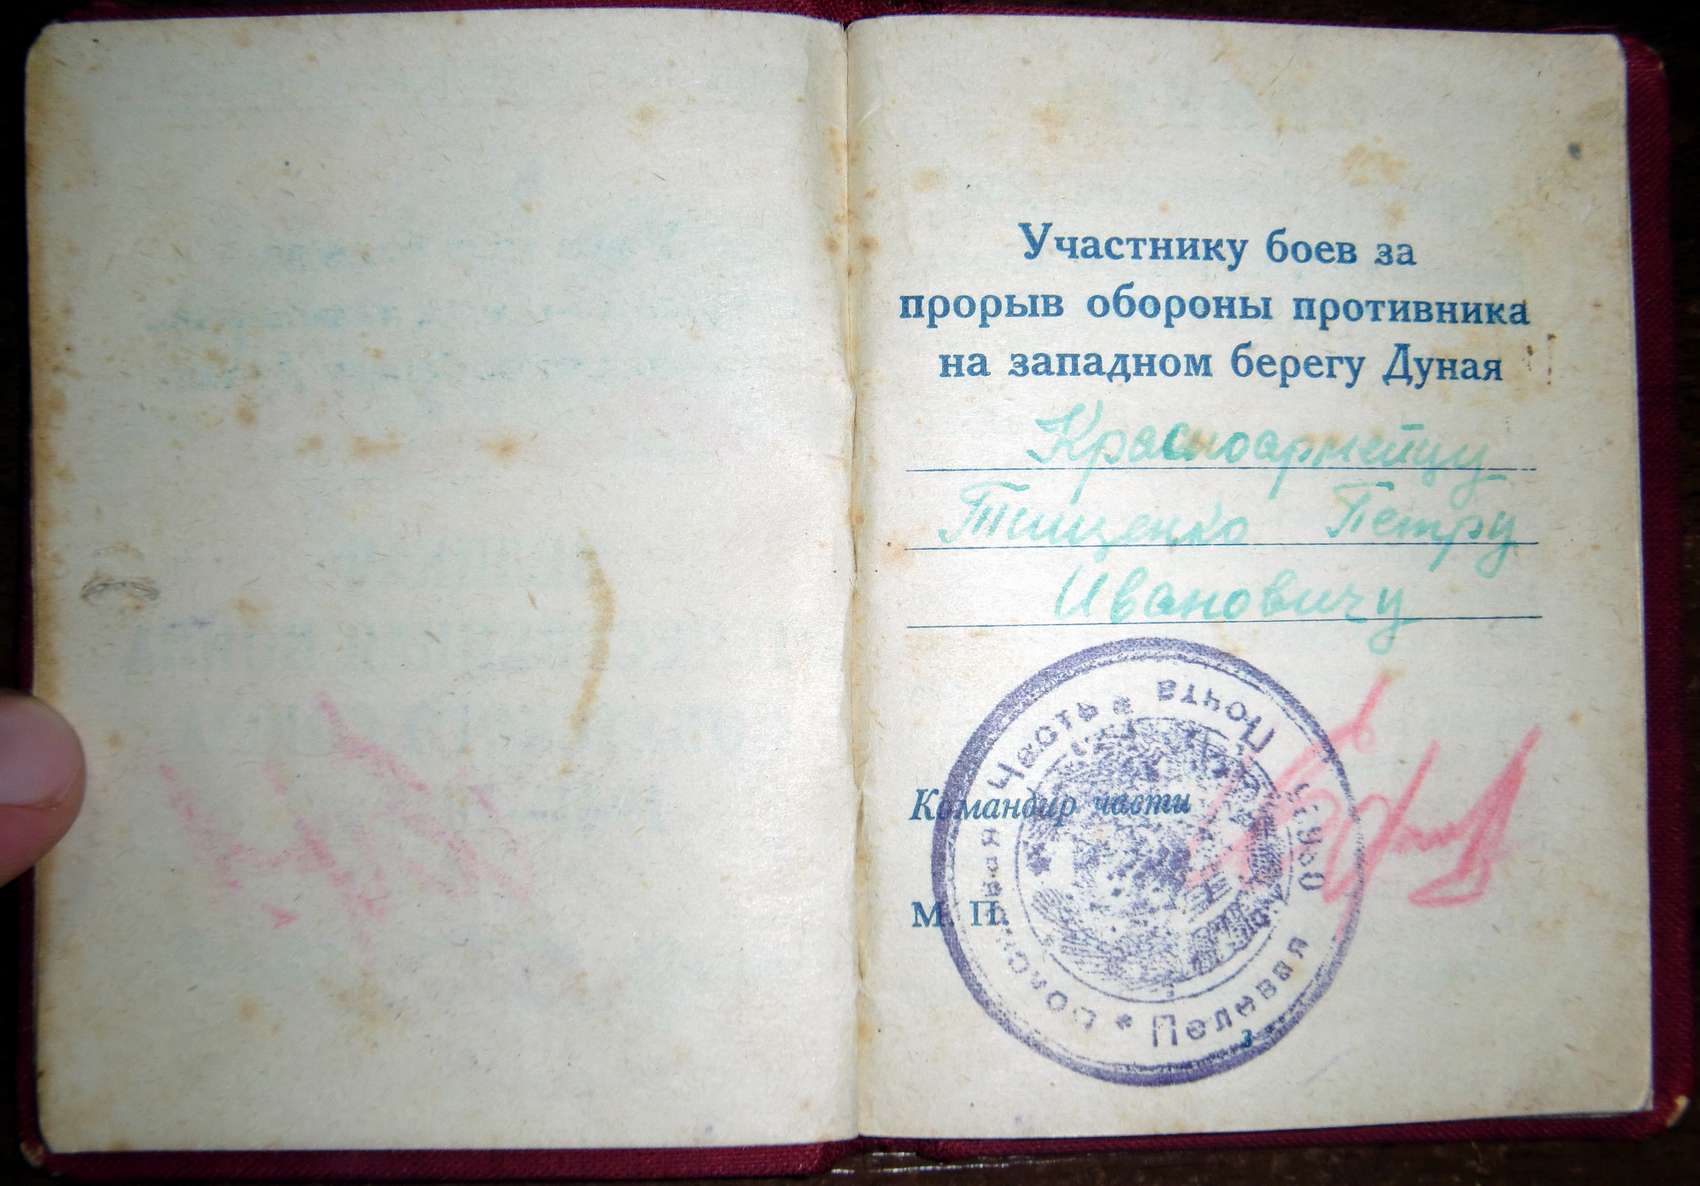 Участнику боев за
прорыв обороны противника
на западном берегу Дуная
Красноармейцу
Тищенко Петру
Ивановичу
Командир части
М. П.
Полевая Почта
Войсковая Часть
3